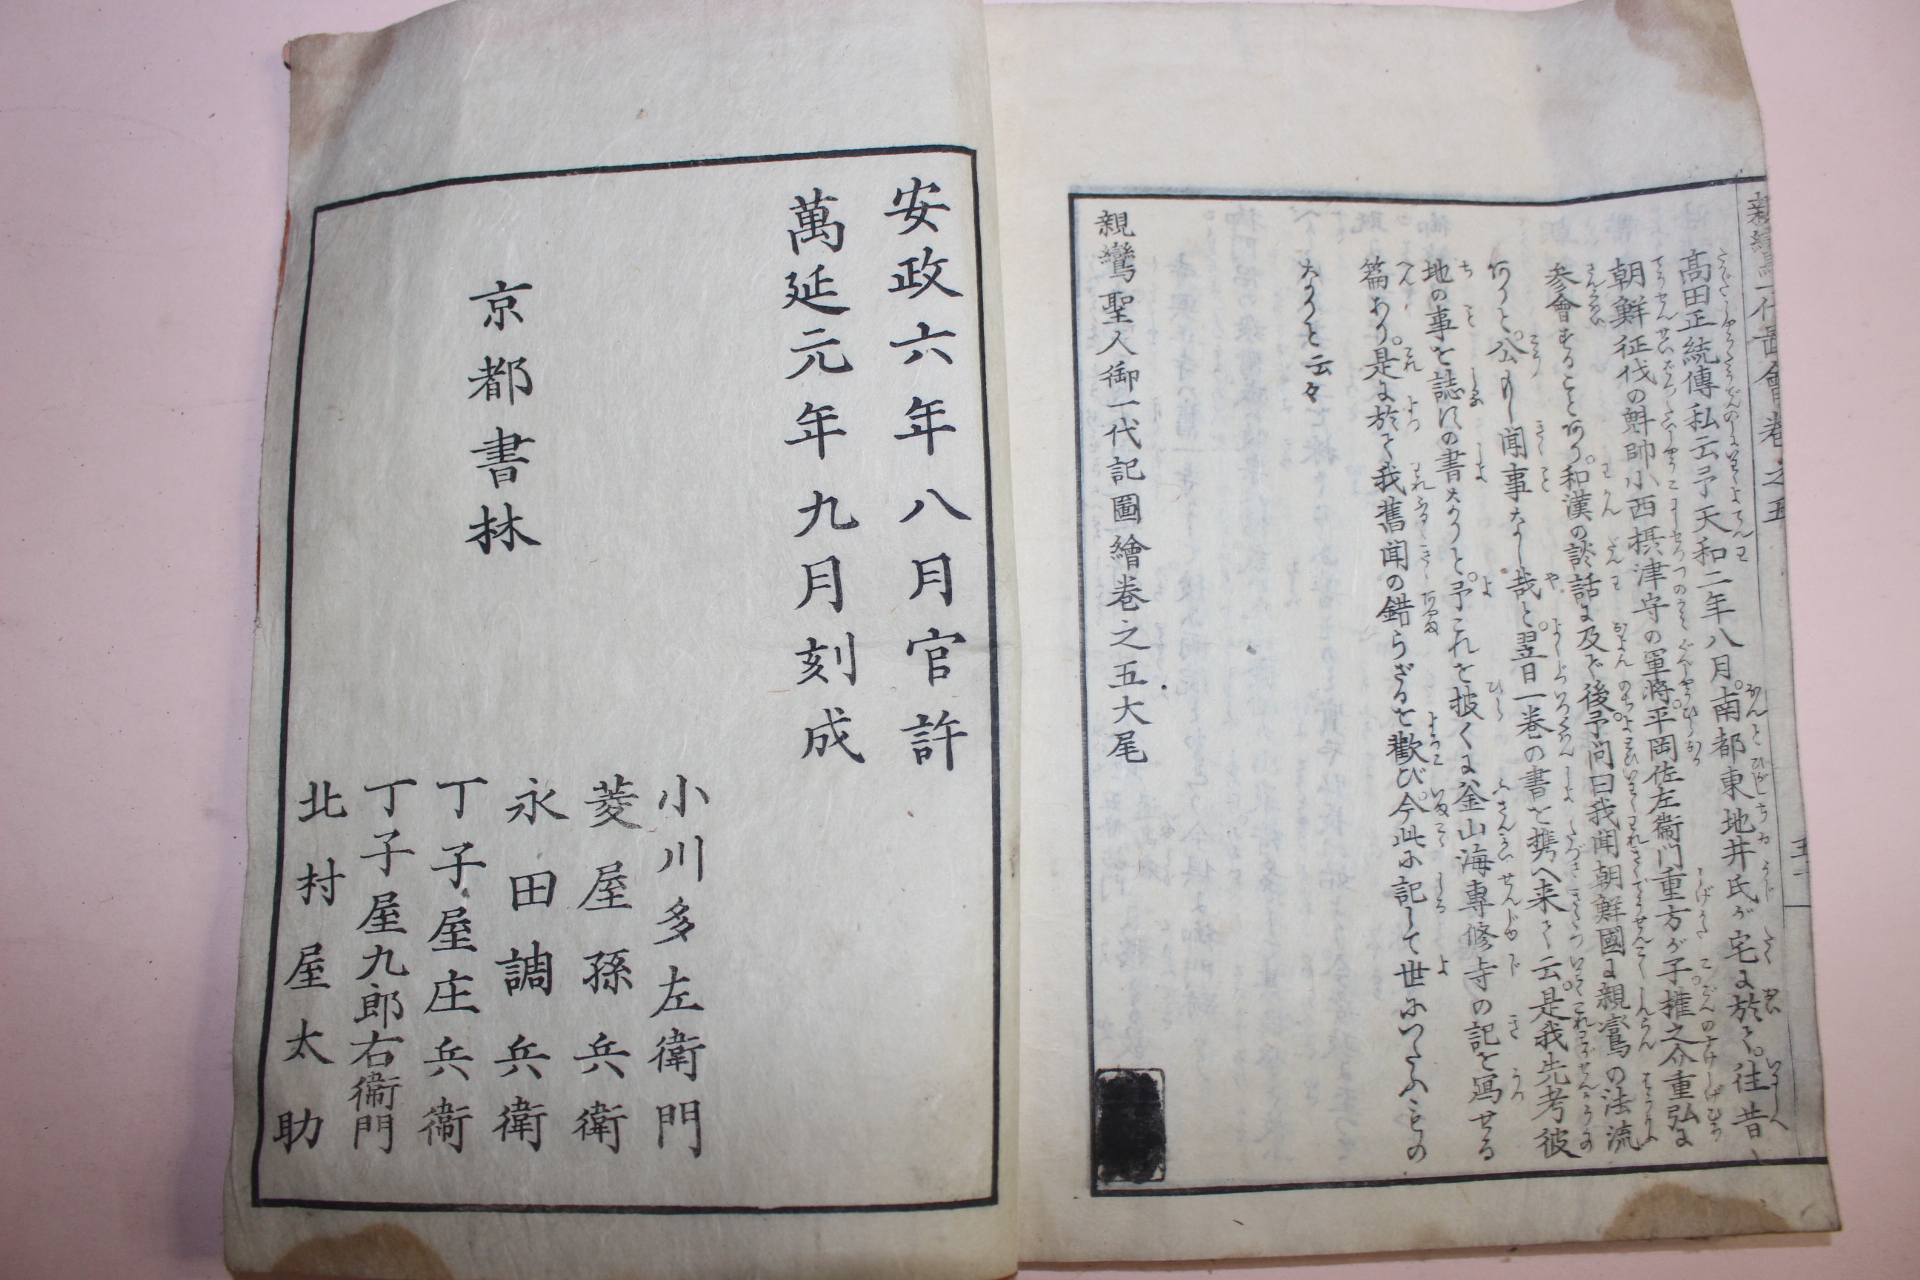 高田正統傳私云予天和二年八月南都東地井氏が宅に於て往昔
朝鮮征伐の魁帥小西摂津守の軍将平岡佐左衞門重方が子権之介重弘に
参會することあり和漢の談話に及び後予问曰我聞朝鮮國に親鸞の法流
ありと公もし聞事なし哉と翌日一巻の書を携へ来て云是我先考彼
地の事を誌すの書なりと予これを披くに釜山海専修寺の記を寫せる
篇あり是に於て我舊闻の錯らざるを歡び今此に記して世につたふるもの
なりと云々
親鸞聖人御一代記圖繪巻之五大尾
安政六年八月官許
萬延元年九月刻成
京都書林
小川多左衛門
菱屋孫兵衛
永田調兵衛
丁子屋庄兵衞
丁子屋九郎右衞門
北村屋太助